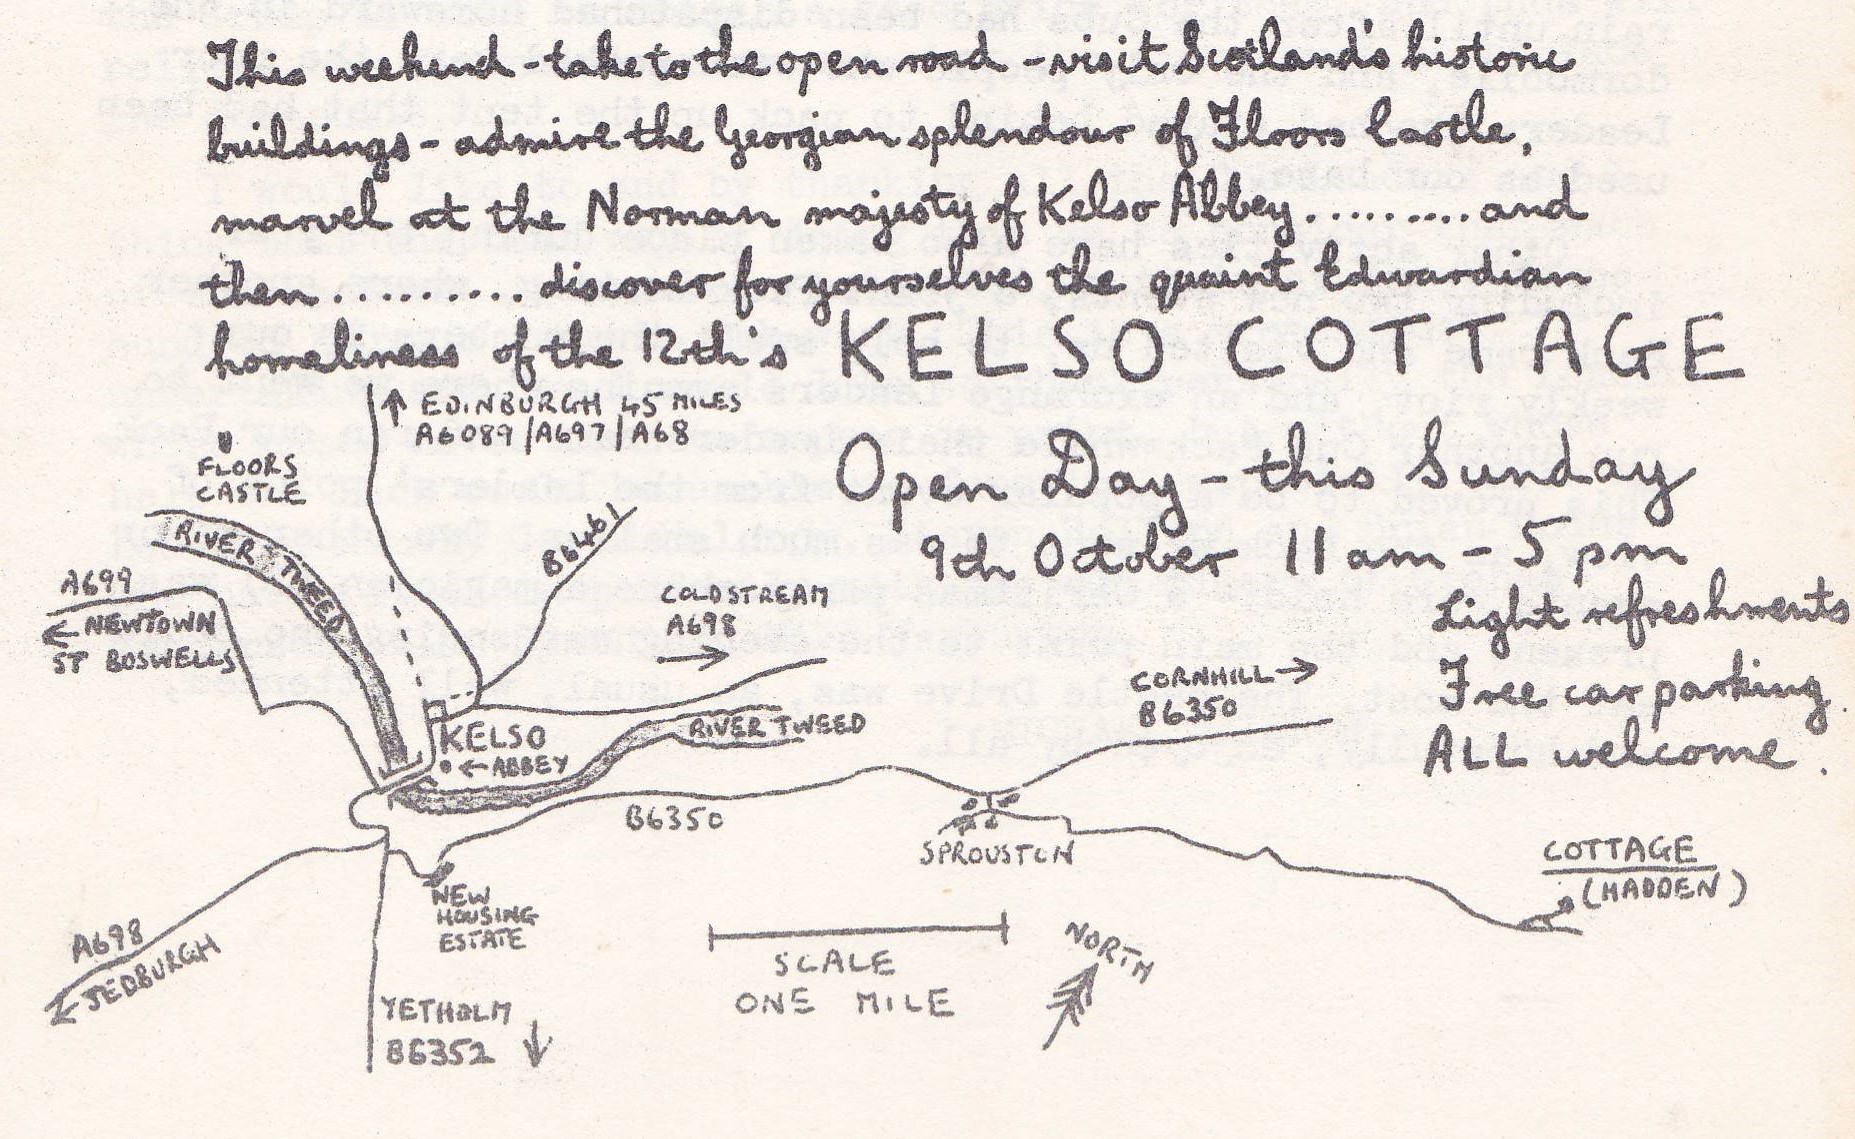 This weekend - take to the open road - visit Scotland's historic
buildings - admire the Georgian splendour of Floors Castle,
marvel at the Norman majesty of Kelso Abbey.........and
then.........discover for yourselves the quaint Edwardian
homeliness of the 12th's KELSO COTTAGE
↑ EDINBURGH 45 MILES
A6089/A697/A68
FLOORS
CASTLE
Open Day - this Sunday
9th October 11am - 5pm
Light refreshments
Free car parking.
ALL welcome.
RIVER TWEED
B6461
A699
← NEWTOWN
ST BOSWELLS
COLDSTREAM
A698
→
CORNHILL →
B6350
KELSO
← ABBEY
RIVER TWEED
B6350
SPROUSTON
COTTAGE
(HADDEN)
NEW
HOUSING
ESTATE
A698
← JEDBURGH
SCALE
ONE MILE
NORTH
YETHOLM
B6352 ↓